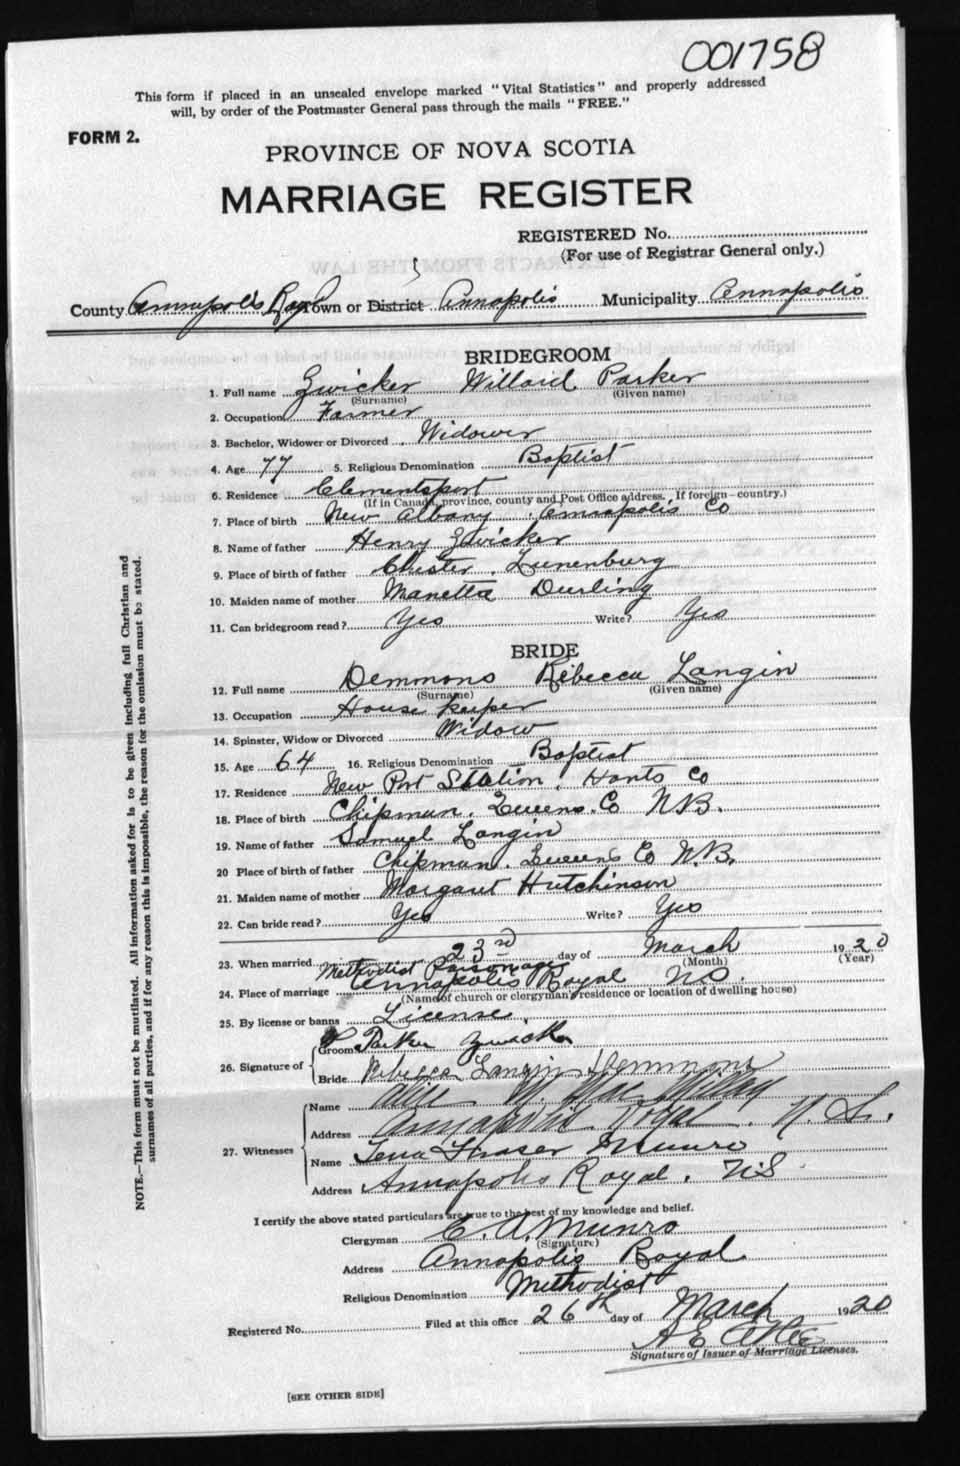 001758
This form if placed in an unsealed envelope marked "Vital Statistics" and properly addressed
will, by order of the Postmaster General pass through the mails "FREE."
FORM 2.
PROVINCE OF NOVA SCOTIA
MARRIAGE REGISTER
REGISTERED No.
(For use of Registrar General only.)
County Annapolis Royal Town or District Annapolis Municipality Annapolis
BRIDEGROOM
1. Full name Zwicker Willard Parker
(Surname) (Given name)
2. Occupation Farmer
3. Bachelor, Widower or Divorced Widower
4. Age 77 5. Religious Denomination Baptist
6. Residence Clementsport
(If in Canada, province, county and Post Office address. If foreign—country.)
7. Place of birth New Albany, Annapolis Co
8. Name of father Henry Zwicker
9. Place of birth of father Chester, Lunenburg
10. Maiden name of mother Manetta Durling
11. Can bridegroom read? Yes Write? Yes
BRIDE
12. Full name Demmons Rebecca Langin
(Surname) (Given name)
13. Occupation House keeper
14. Spinster, Widow or Divorced Widow
15. Age 64 16. Religious Denomination Baptist
17. Residence New Port Station, Hants Co
18. Place of birth Chipman, Queens Co N.B.
19. Name of father Samuel Langin
20 Place of birth of father Chipman, Queens Co N.B.
21. Maiden name of mother Margaret Hutchinson
22. Can bride read? Yes Write? Yes
23. When married 23rd day of March 1920
(Month) (Year)
Methodist Parsonage
24. Place of marriage Annapolis Royal N.S.
(Name of church or clergyman's residence or location of dwelling house)
25. By license or banns License.
26. Signature of
Groom Parker Zwicker
Bride Rebecca Langin Demmons
27. Witnesses
Name M. Mac
Address Annapolis Royal. N.S.
Name Tena Fraser Munro
Address Annapolis Royal, N.S.
I certify the above stated particulars are true to the best of my knowledge and belief.
Clergyman E. A. Munro
(Signature)
Address Annapolis Royal
Religious Denomination Methodist
Registered No. Filed at this office 26th day of March 1920
A E
Signature of Issuer of Marriage Licenses.
[SEE OTHER SIDE]
NOTE.—This form must not be mutilated. All information asked for is to be given including full Christian and
surnames of all parties, and if for any reason this is impossible, the reason for the omission must be stated.